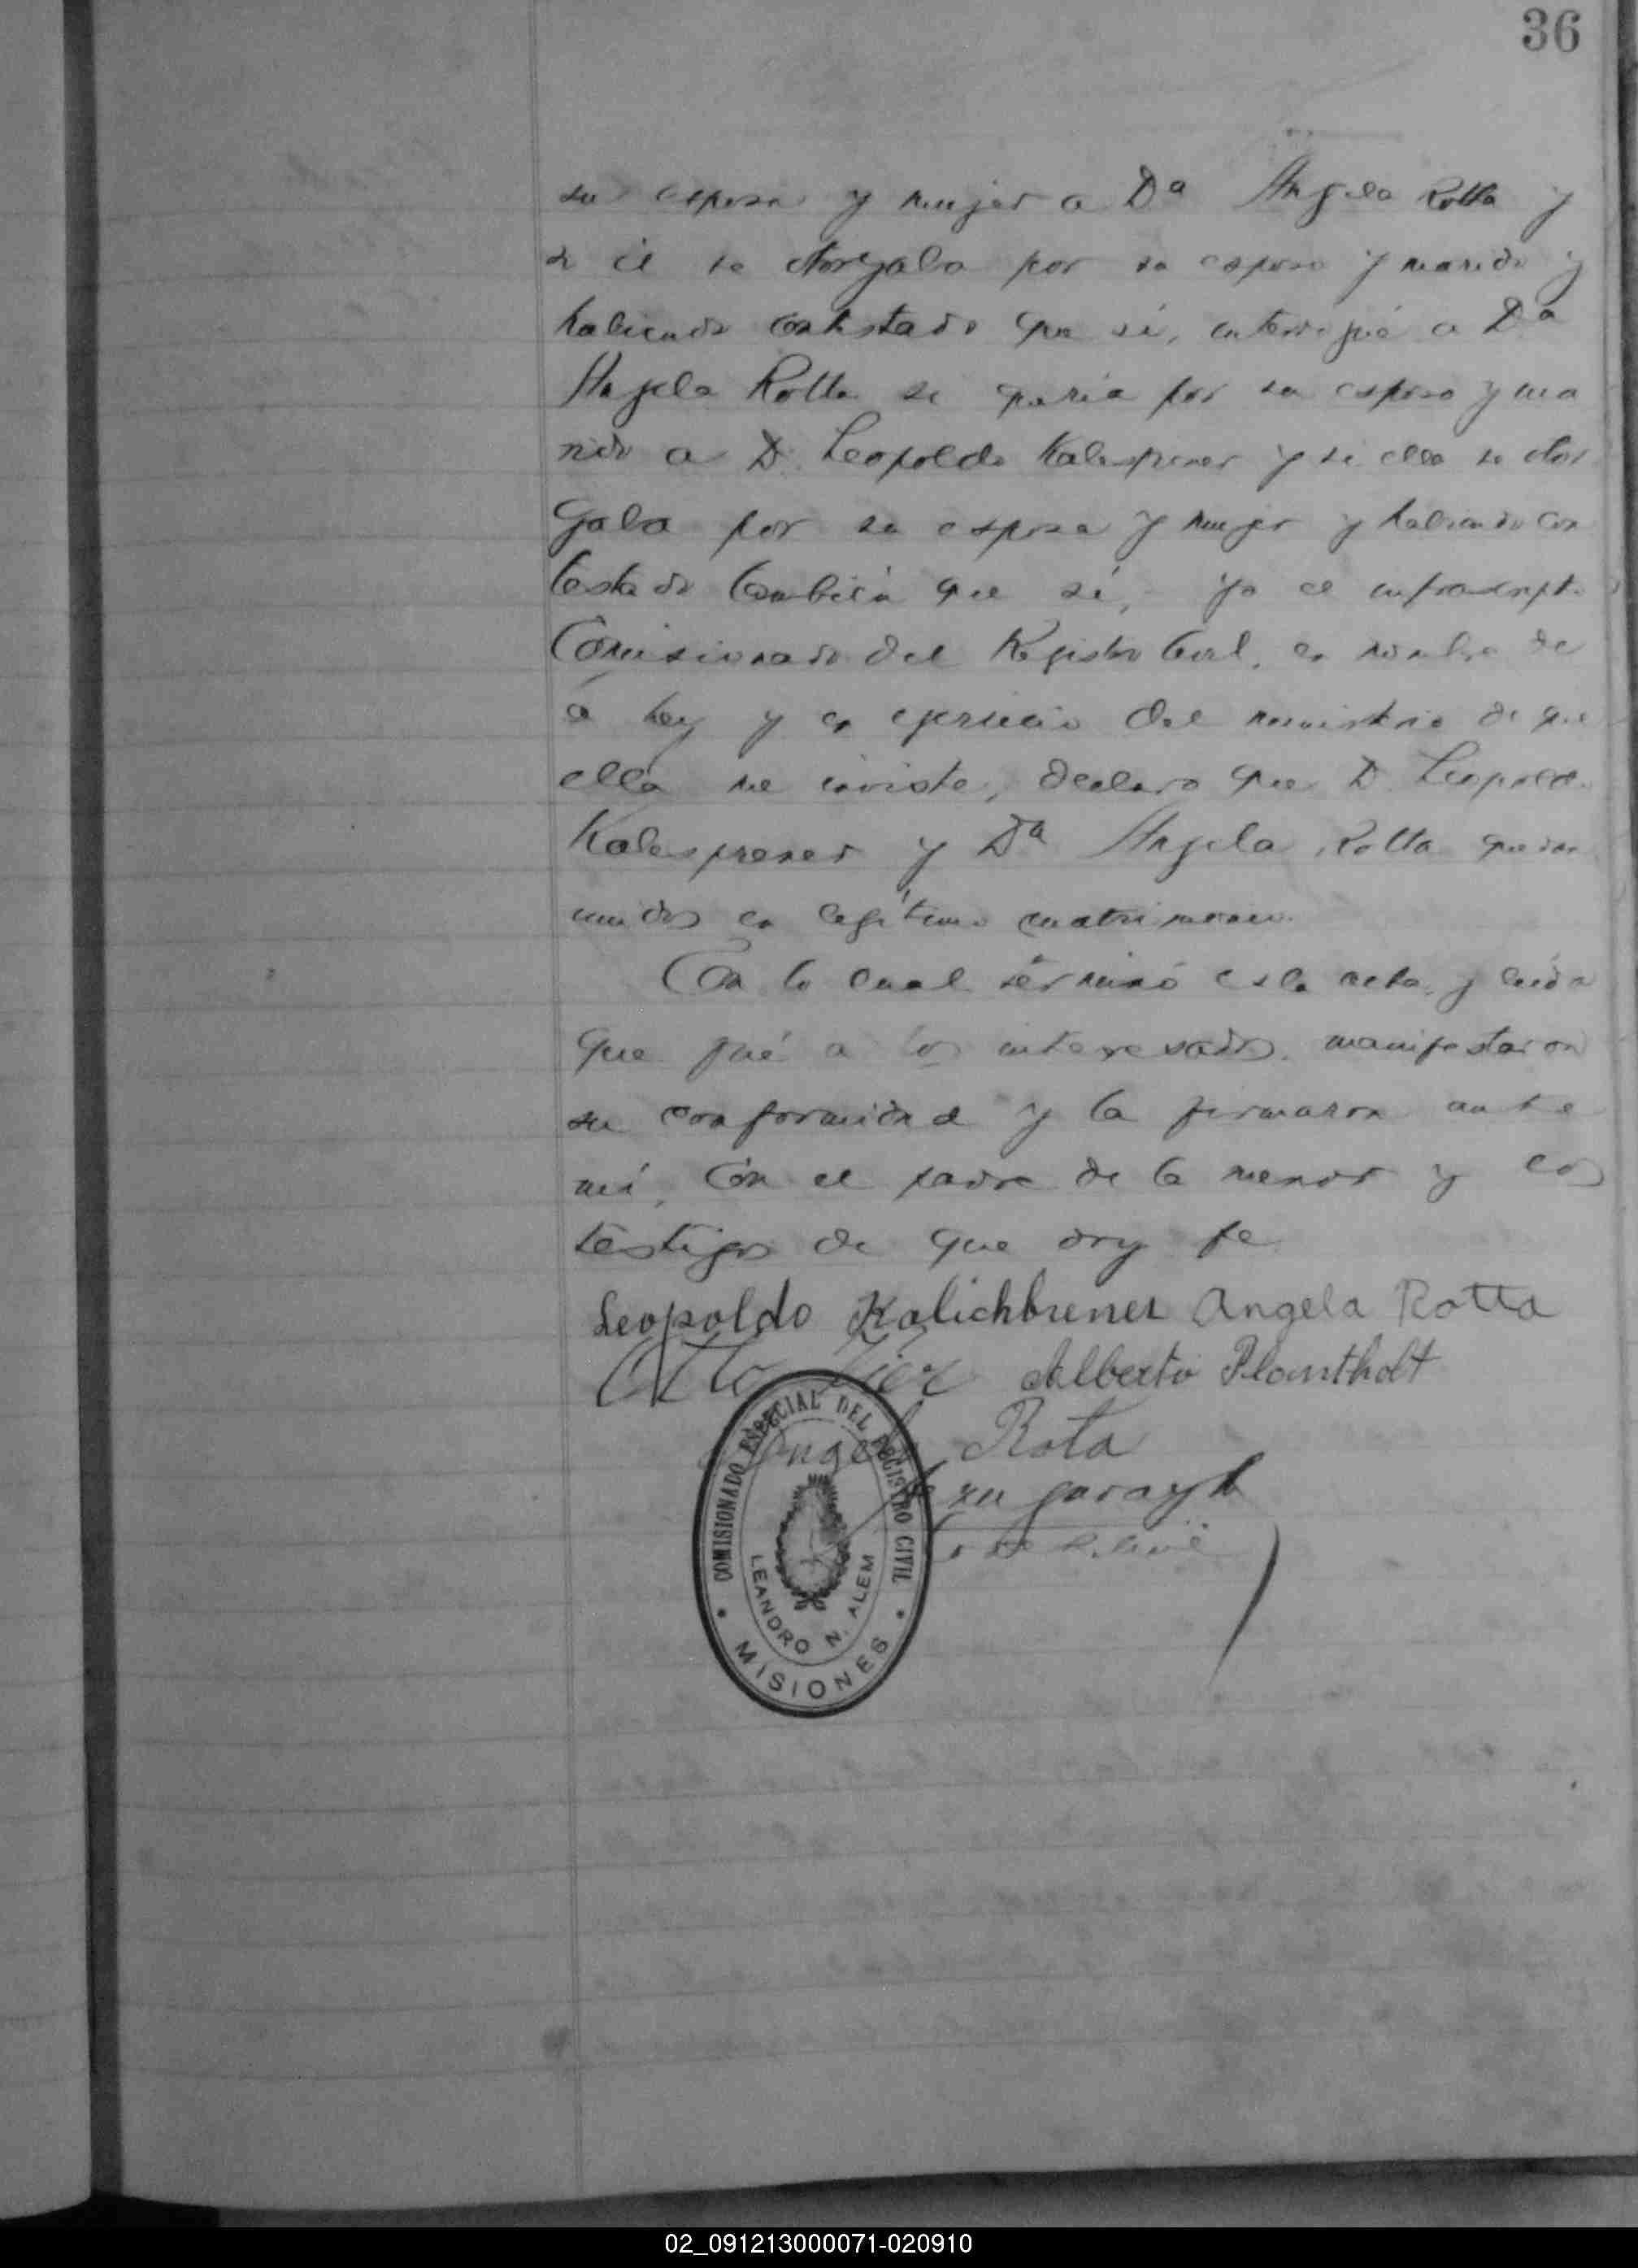 36
su esposa y mujer a Dª Angela Rotta y
si él se otorgaba por su esposo y marido y
habiendo contestado que sí, interrogué a Dª
Angela Rotta si quería por su esposo y ma
rido a D. Leopoldo Kalesprener y si ella se otor
gaba por su esposa y mujer y habiendo con
testado también que sí, - yo el infrascripto
Comisionado del Registro Civil, en nombre de
a ley y en ejercicio del ministerio de que
ella me inviste, declaro que D. Leopoldo
Kalesprener y Dª Angela Rotta quedan
unidos en legítimo matrimonio.
Con lo cual terminó esta acta, y leída
que fué a los interesados, manifestaron
su conformidad y la firmaron ante
mí, con el padre de la menor y los
testigos de que doy fe
Leopoldo Kalichbrener Angela Rotta
Otto Alberto Plantholt
Angel Rota
COMISIONADO ESPECIAL DEL REGISTRO CIVIL
LEANDRO N. ALEM
MISIONES
02_091213000071-020910